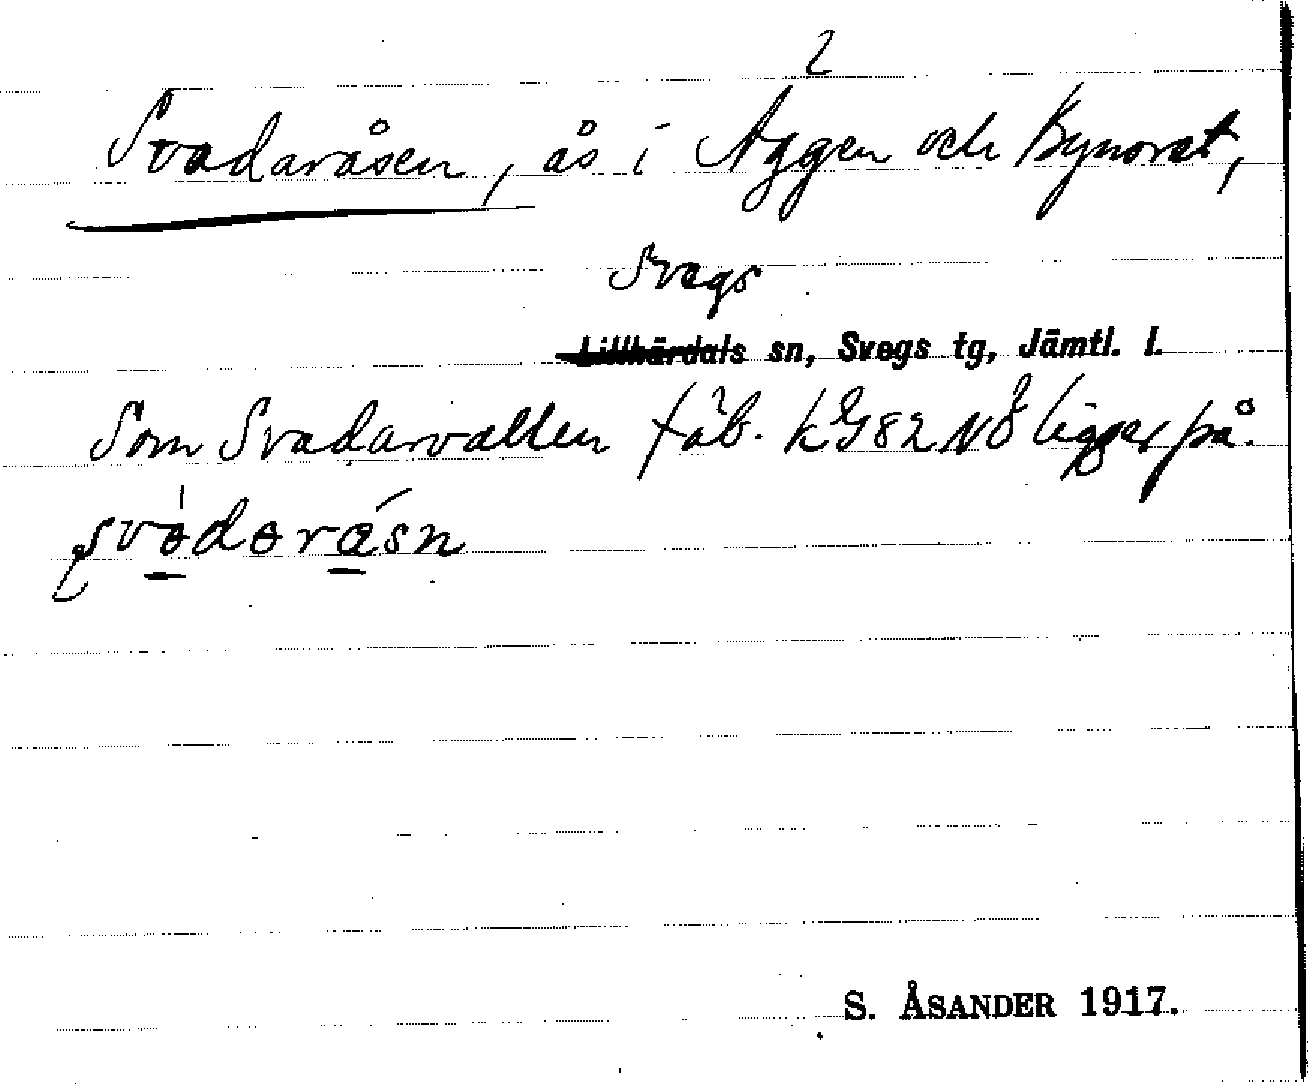 2
Svadaråsen, ås i Äggen och Bynoret,
Svegs
Lillhärdals sn, Svegs tg, Jämtl. l.
Som Svadarvallen fäb. kG82NÖ ligger på.
S. ÅSANDER 1917.